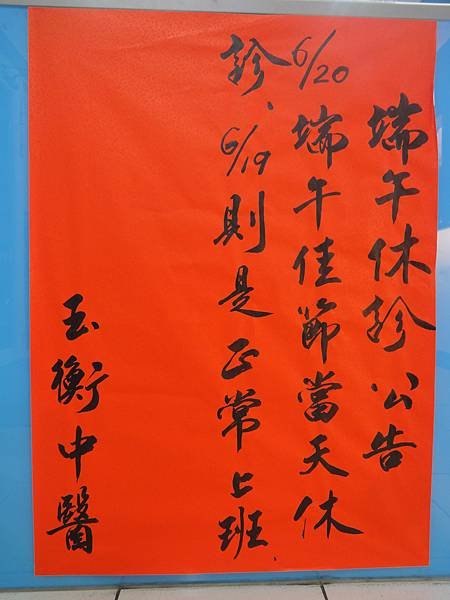 端午休診公告
6/20端午佳節當天休
診、6/19則是正常上班.
玉衡中醫